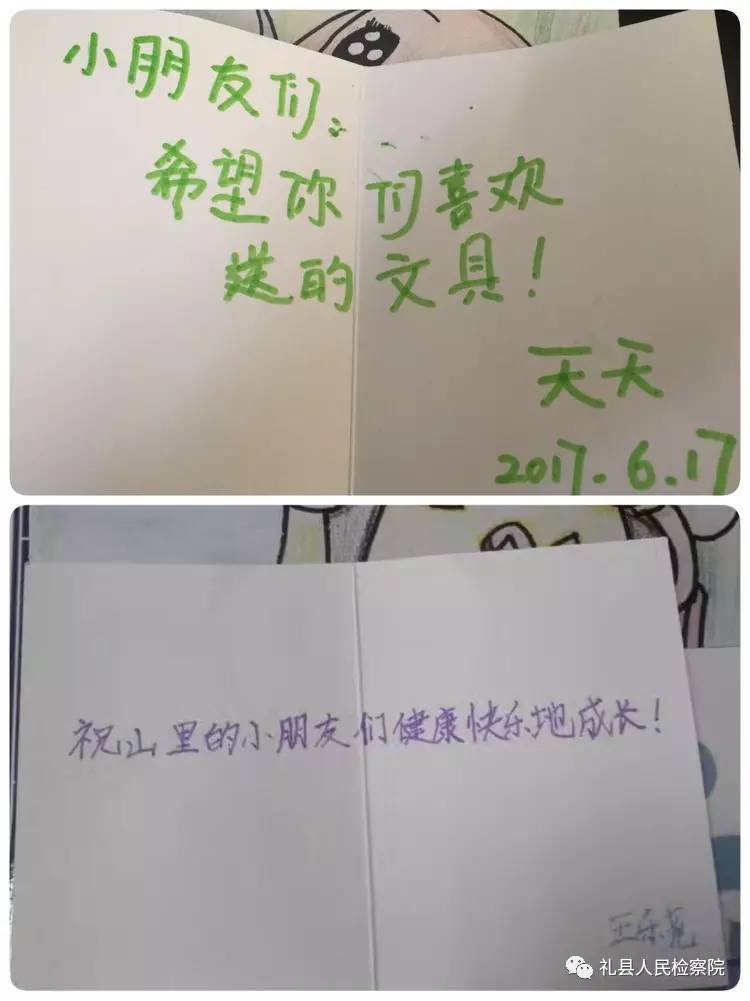 小朋友们：
希望你们喜欢
送的文具！
天天
2017.6.17
祝山里的小朋友们健康快乐地成长！
王乐
礼县人民检察院